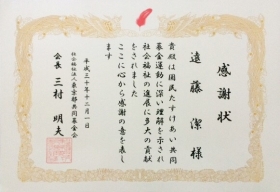 感謝状
遠藤 潔 様
貴殿は国民たすけあい共同
募金運動に深い理解を示され
社会福祉の進展に多大の貢献
をされました
ここに心から感謝の意を表し
ます
平成三十年十二月一日
社会福祉法人東京都共同募金会
会長 三村 明夫